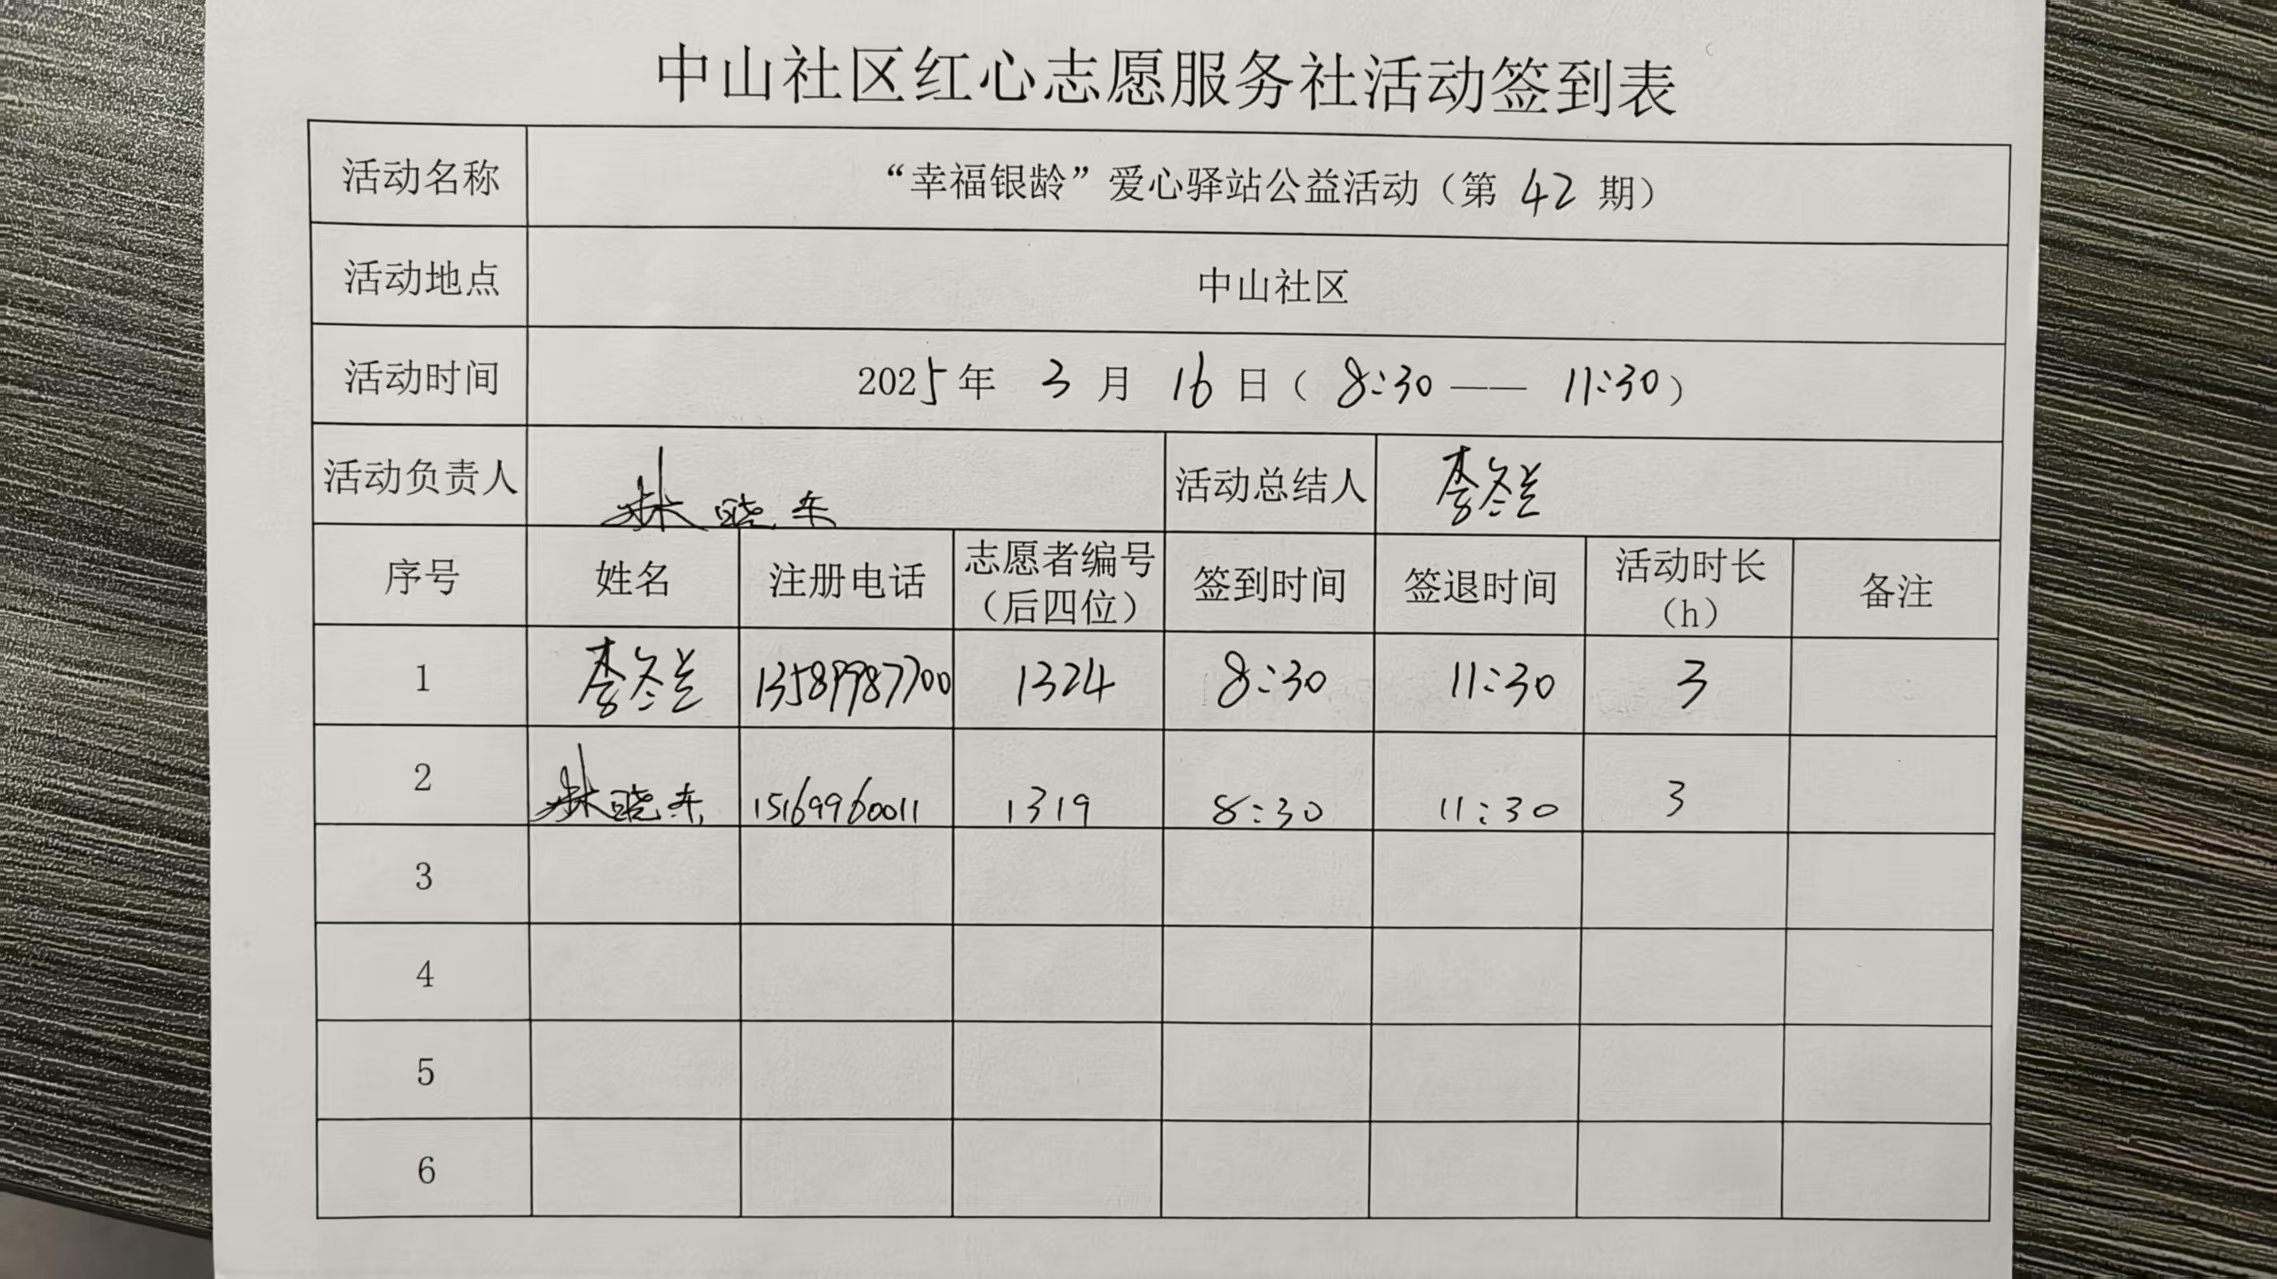 中山社区红心志愿服务社活动签到表
活动名称 “幸福银龄”爱心驿站公益活动（第 42 期）
活动地点 中山社区
活动时间 2025年 3 月 16 日（ 8:30 —— 11:30）
活动负责人 林晓东 活动总结人 李冬兰
序号 姓名 注册电话 志愿者编号（后四位） 签到时间 签退时间 活动时长（h） 备注
1 李冬兰 13589987700 1324 8:30 11:30 3
2 林晓东 15169960011 1319 8:30 11:30 3
3
4
5
6